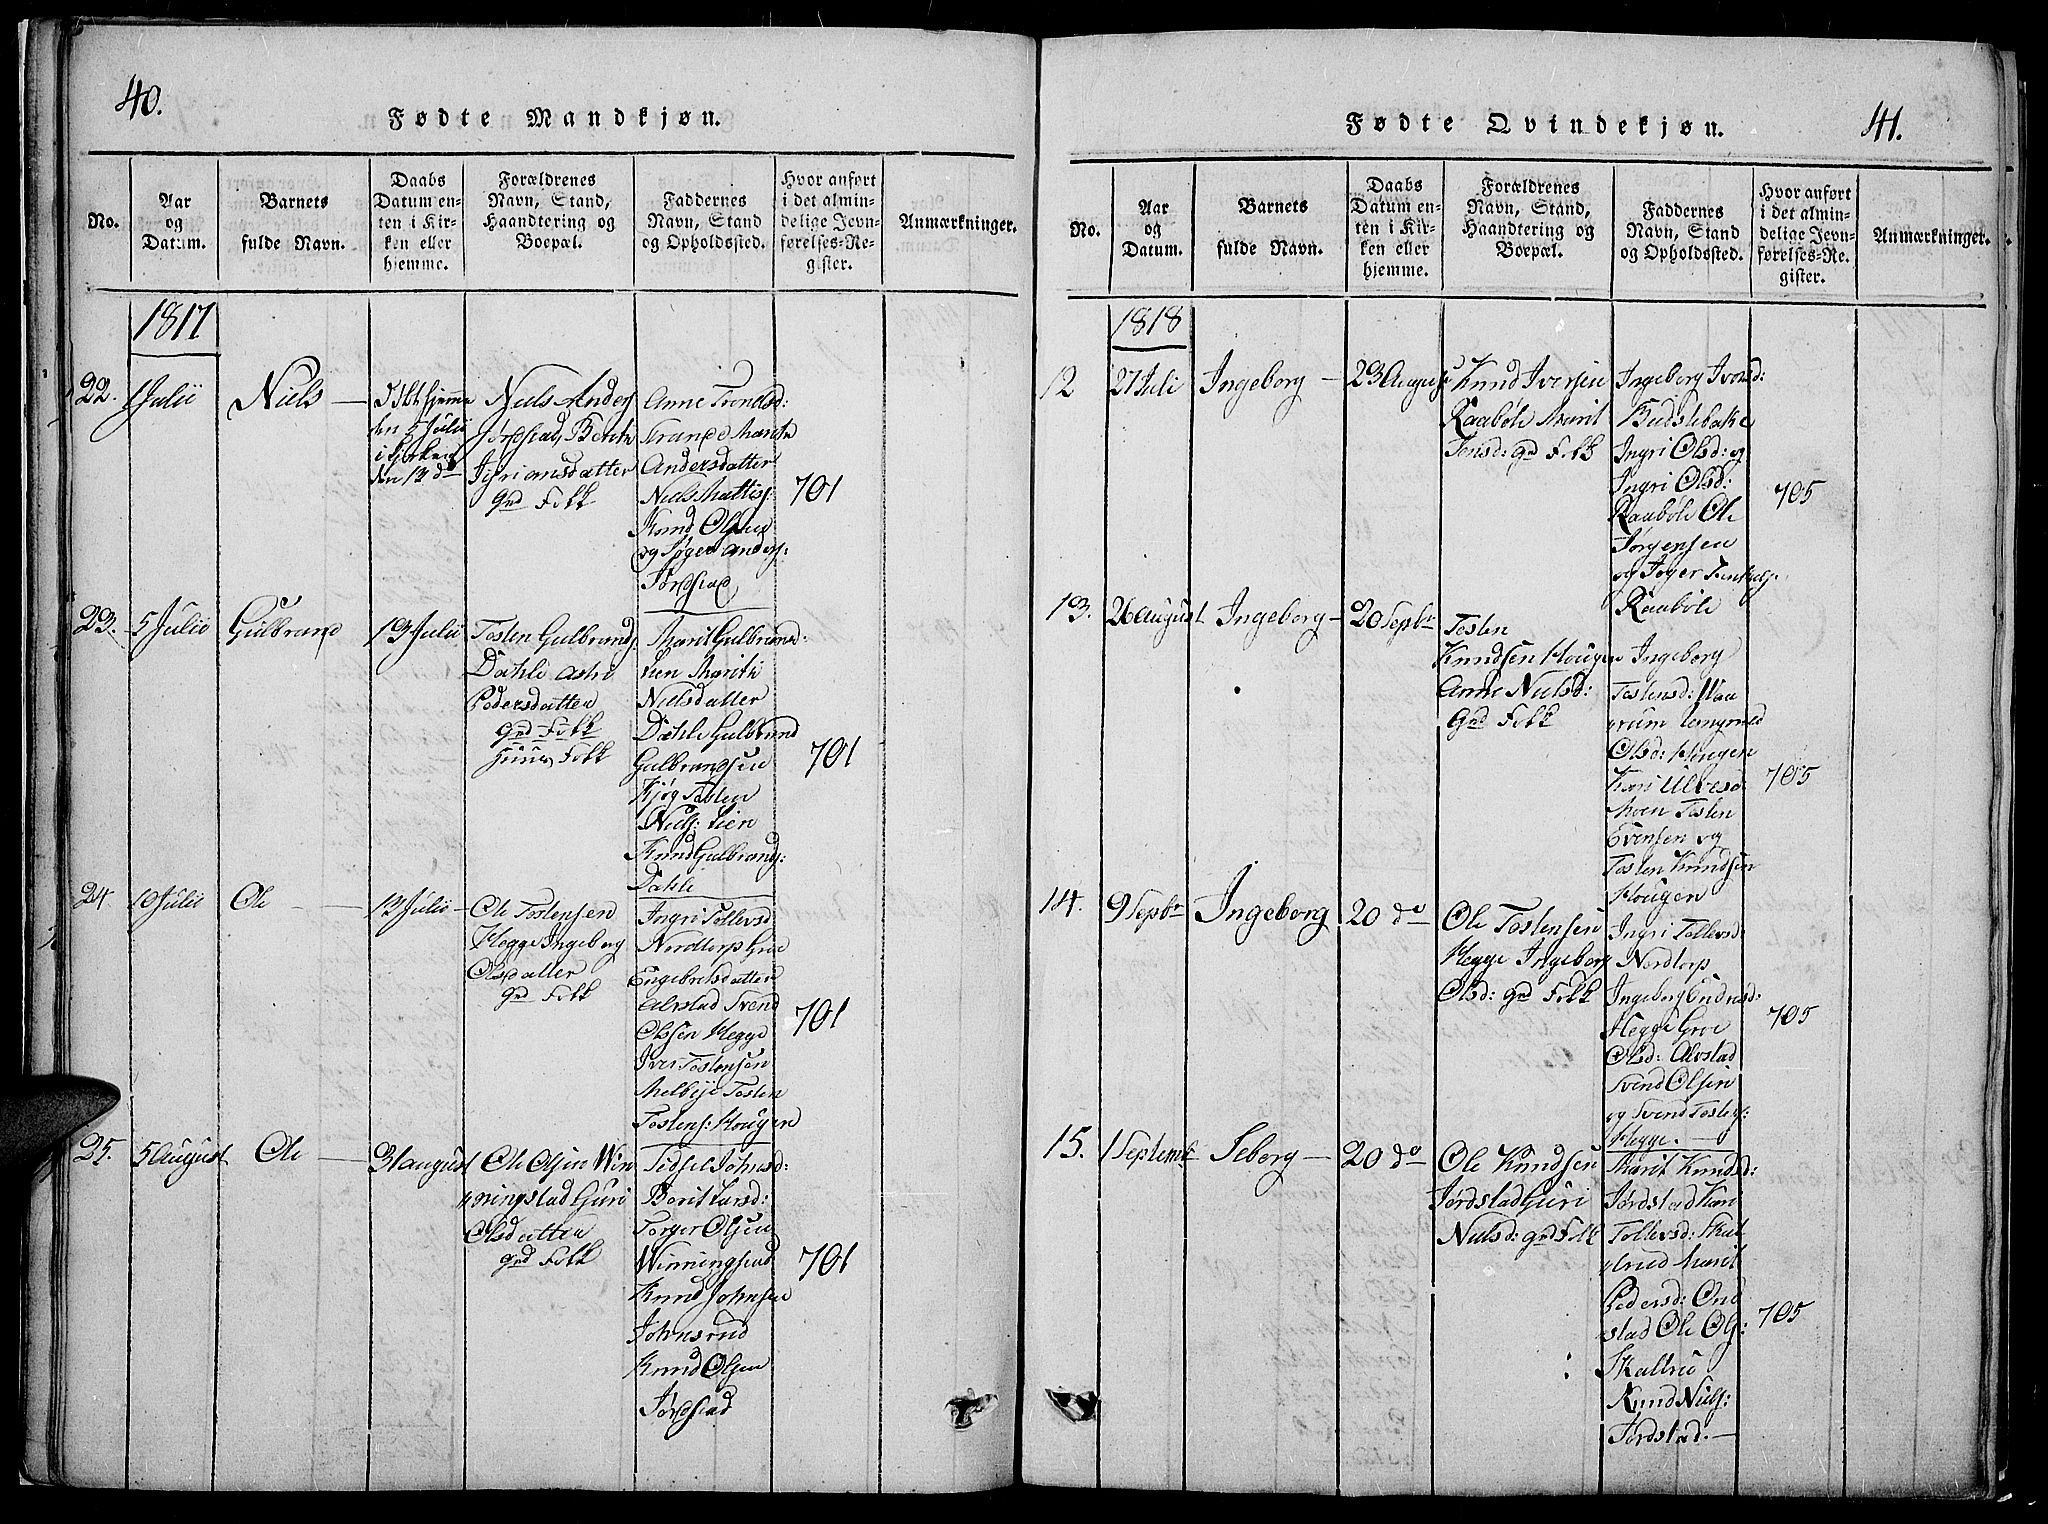 40.
Fødte Mandkjøn.
No.
Aar
og
Datum.
Barnets
fulde Navn.
Daabs
Datum en-
ten i Kir-
ken eller
hjemme.
Forældrenes
Navn, Stand,
Haandtering og
Boepæl.
Faddernes
Navn, Stand
og Opholdssted.
Hvor anført
i det almin-
delige Jevn-
førelses-Re-
gister.
Anmærkninger.
1817
22.
1 Julii
Niels
Døbt hjemme
den 5 Julii
i Kirken
den 13 do
Niels Anders
Jørdstad, Berith
datter
grd Folk
Anne Trondsd:
Trande Marith
Andersdatter
Niels Mattis:
Knud Olsen
og Anders:
Jørdstad
701
23.
5 Julii
Gulbrand
13 Julii
Tosten Gulbrands
Dahle Astri
Pedersdatter
grd Folk
Huus Folk
Marit Gulbrands:
Lien Marith
Nielsdatter
Dahle Gulbrand
Gulbrandsen
Kjøg Tosten
Niels: Lien
Knud Gulbrands:
Dahle
701
24
10 Julii
Ole
13 Julii
Ole Tostensen
Hegge Ingeborg
Olsdatter
grd Folk
Ingri Tollevsd
Nordtorp Groe
Engebretsdatter
Alvstad Svend
Olssen Hegge
Iver Tostensen
Melbye Tosten
Tostens: Hougen
701
25.
5 August
Ole
31 August
Ole Olsen Win
ningstad Guri
Olsdatter
grd Folk
Sedsel Johnsd:
Berit Larsd:
Torger Olsen
Winningstad
Knud Johnsen
Johnsrud
Knud Olsen
Jørdstad
701
41.
Fødte Qvindekjøn.
No.
Aar
og
Datum.
Barnets
fulde Navn.
Daabs
Datum en-
ten i Kir-
ken eller
hjemme.
Forældrenes
Navn, Stand,
Haandtering og
Boepæl.
Faddernes
Navn, Stand
og Opholdssted.
Hvor anført
i det almin-
delige Jevn-
førelses-Re-
gister.
Anmærkninger.
1818
12
27 Juli
Ingeborg
23 August
Knud Iversen
Raabøle Marit
Jensd: grd Folk
Ingeborg Iversd:
Budslebakke
Ingri Olsd: og
Ingri Olsd:
Raabøle Ole
Jørgensen
og
Raabøle
705
13.
26 August
Ingeborg
20 Septbr
Tosten
Knudsen Hougen
Anne Nielsd:
grd Folk
Ingeborg
Tostensd:
Olsd: Hougen
Kari Ulvesø
Moen Tosten
Evensen og
Tosten Knudsen
Hougen
705
14.
9 Septbr
Ingeborg
20 do
Ole Tostensen
Hegge Ingeborg
Olsd: grd Folk
Ingri Tollevsd:
Nordtorp
Ingeborg Endresd:
Hegge Groe
Olsd: Alvstad
Svend Olsen
og Svend Tostens:
Hegge.
705
15.
1 Septembr
Seborg
20 do
Ole Knudsen
Jørdstad Guri
Nielsd: grd Folk
Marit Knudsd:
Jørdstad Kari
Tollevsd: Skat
Marit
Pedersd: Ond
stad Ole Ols:
Skattrud
Knud Niels:
Jørdstad.
705